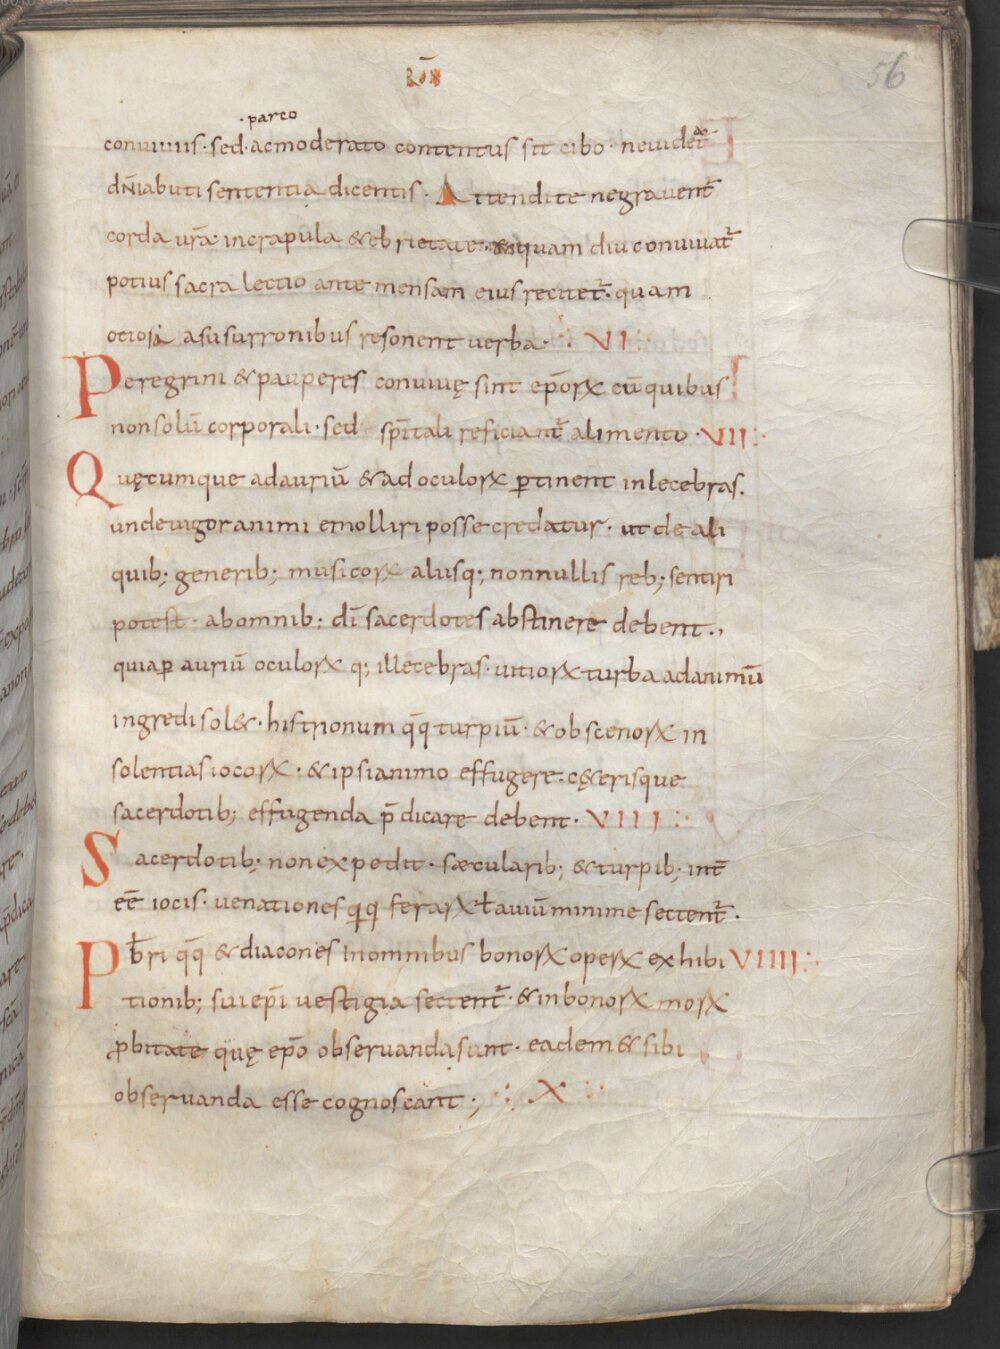 56
parco
conviviis · sed · ac moderato contentus sit cibo · ne videat̄
dn̄i abuti sententia dicentis · Attendite ne gravent̄
corda vr̄a in crapula & ebrietate · & quam diu convivat̄
potius sacra lectio ante mensam eius recitet̄ · quam
otiosa a susurronibus resonent verba · VI
Peregrini & pauperes convivę sint ep̄oꝝ cū quibus
non solū corporali · sed sp̄itali reficiant̄ alimento · VII
Quęcumque ad auriū & ad oculoꝝ ꝑtinent inlecebras ·
unde vigor animi emolliri posse credatur · ut de ali
quib; generib; musicoꝝ aliisq; nonnullis reb; sentiri
potest · ab omnib; dī sacerdotes abstinere debent ·,
quia ꝑ auriū oculoꝝ q; illecebras · vitioꝝ turba ad animū
ingredi sol& · histrionum q̄q̄ turpiū · & obscenoꝝ in
solentias iocoꝝ · & ipsi animo effugere · c&erisque
sacerdotib; effugienda p̄dicare debent · VIII
Sacerdotib; non expedit · sæcularib; & turpib; int̄
eē iocis · venationes q̄q̄ feraꝝ ł aviū minime sectent̄ ·
Pb̄ri q̄q̄ & diacones in omnibus bonoꝝ opeꝝ exhibi VIIII
tionib; sui ep̄i vestigia sectent̄ · & in bonoꝝ moꝝ
ꝓbitate quę ep̄o observanda sunt · eadem & sibi
observanda esse cognoscant ; X